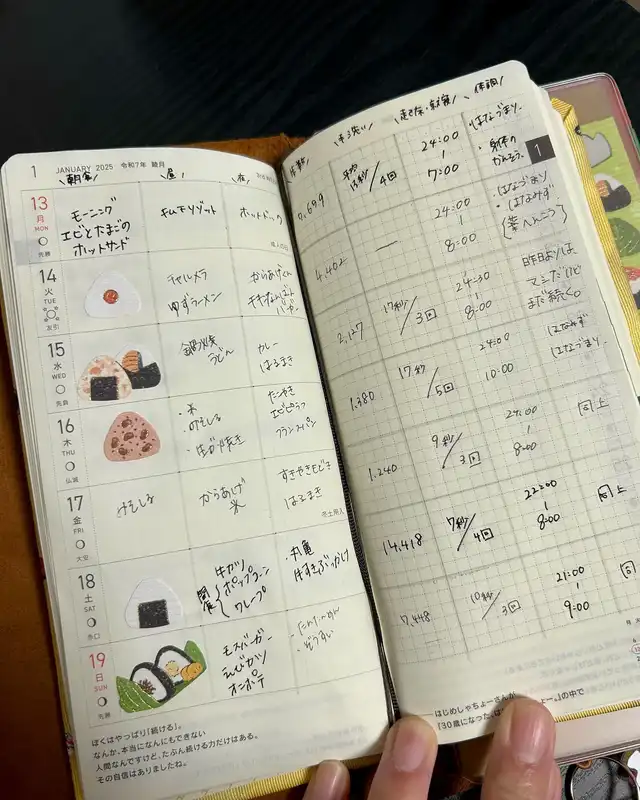 1 JANUARY 2025 令和7年 睦月
朝食/ 昼/ 夜/
13
月
MON
先勝
モーニング
エビとたまごの
ホットサンド
キムチリゾット
ホットドック
成人の日
14
火
TUE
友引
チャルメラ
ゆずラーメン
からあげくん
チキンなんばん
バーガー
15
水
WED
先負
鍋焼き
うどん
カレー
はるまき
16
木
THU
仏滅
・米
・みそしる
・生が焼き
たつやき
エビピラフ
フランスパン
17
金
FRI
大安
みそしる
からあげ
米
はるまき
冬土用入
18
土
SAT
赤口
牛カツ
ポップコーン
クレープ
・丸亀
牛すきぶっかけ
19
日
SUN
先勝
モスバーガー
えびカツ
オニポテ
・たんたんめん
・ぞうすい
ぼくはやっぱり「続ける」。
なんか、本当になんにもできない
人間なんですけど、たぶん続ける力だけはある。
その自信はありましたね。
歩数/ 手洗い/ 起き床・就寝/ 体調/
1
0.699
平均
13秒/4回
24:00
|
7:00
はなづまり。
・身体の
かんそう。
4.402
—
24:00
|
8:00
はなづまり
はなみず
2,127
17秒/3回
24:30
|
8:00
昨日よりは
マシだけど
まだ続く。
1.380
17秒/5回
24:00
|
10:00
はなみず
はなづまり。
1.240
9秒/3回
24:00
|
8:00
同上
14.418
7秒/4回
22:00
|
8:00
同上
7.448
10秒/3回
21:00
|
9:00
同
はじめしゃちょーさんが
『30歳になった。
の中で